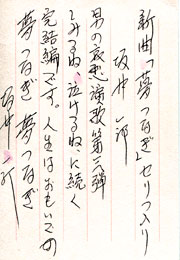 新曲「夢つなぎ」セリフ入り
坂井一郎
男の哀愁演歌第三弾
しみるね、泣けるね、に続く
完結編です。人生はおもいでの
夢つなぎ 夢つなぎ
坂井一郎